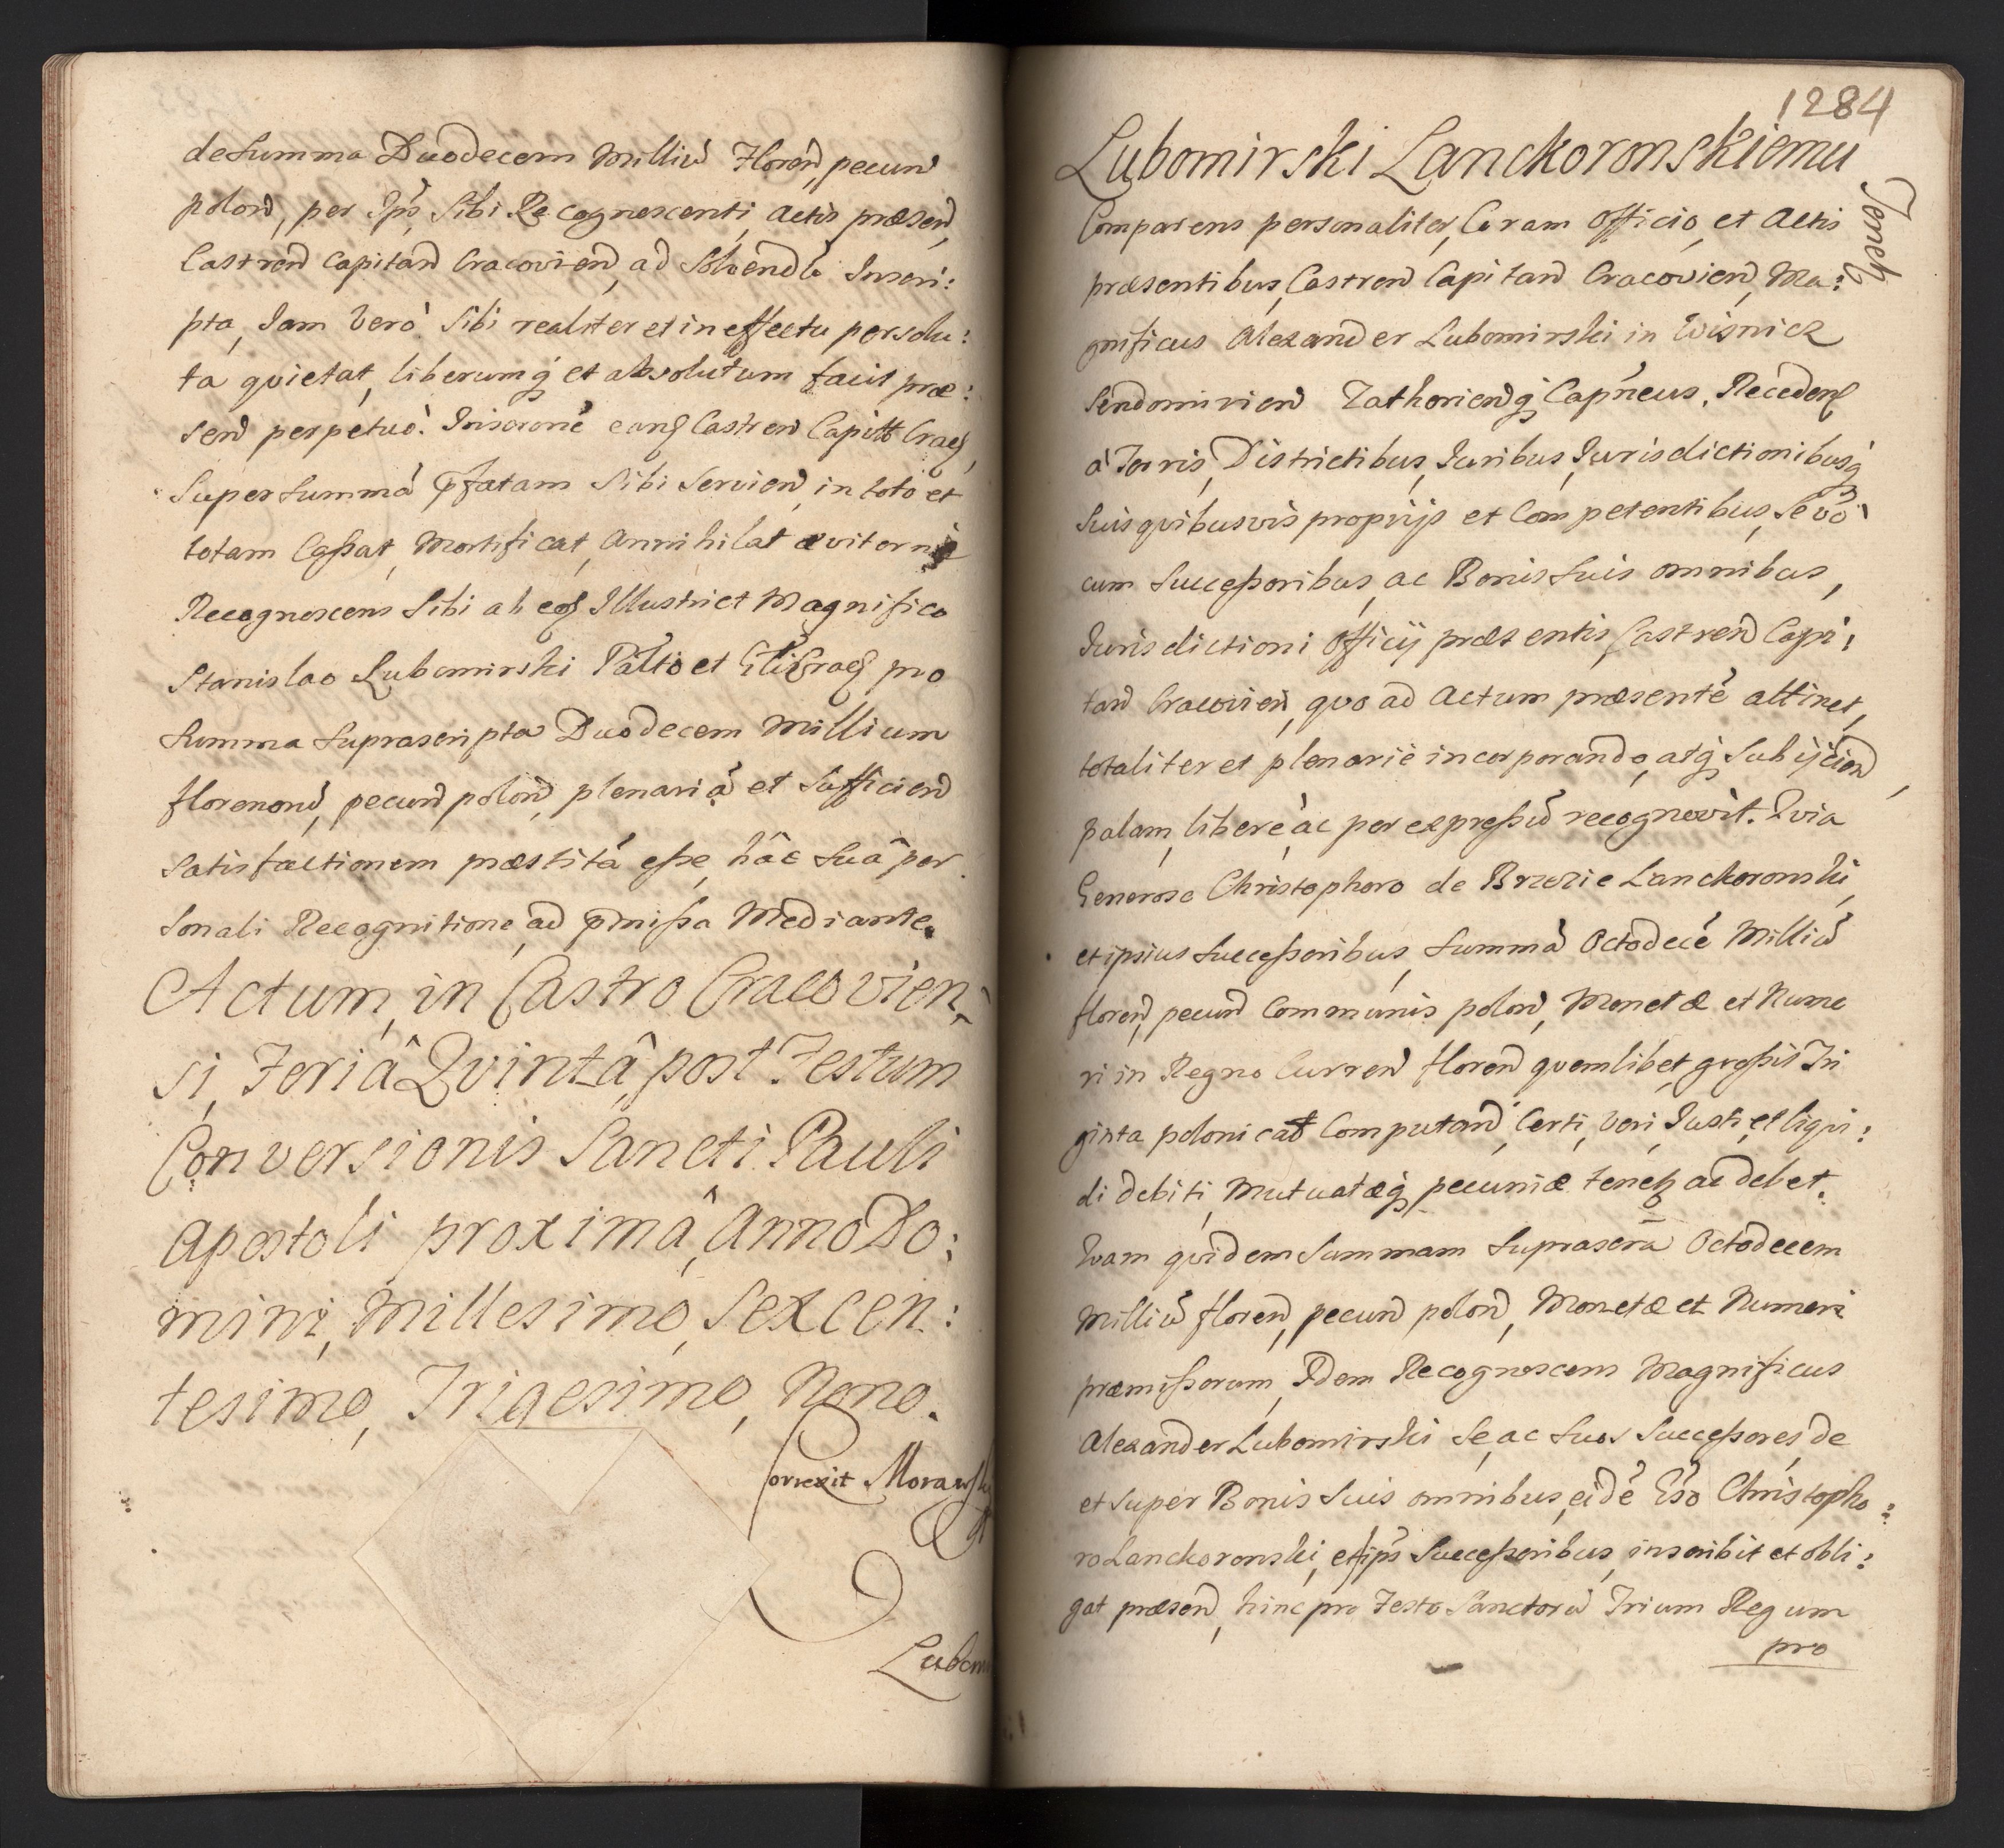 de Summa Duodecem Milliū Floren, pecun
polon, per Ips, Sibi Recognescenti, Actis præsen,
Castren Capitan Cracovien, ad Solvendū Inscri:
pta, Jam Verò Sibi realiter et in effectu persolu:
ta qvietat, liberumq et absolutum facit præ:
sen perpetuò. Inscrone eang Castren Capitt Crac,
Super Summā pfatam Sibi Servien, in toto et
totam Caßat, Mortificat, Annihilat æviternie
Recognoscens Sibi ab eod Illustri et Magnifico
Stanislao Lubomirski Palto et Gli Crac pro
Summa Suprascripta Duodecem Millium
florenorū, pecun polon, plenariā et Sufficien
Satisfactionem præstitā eße, hâc Suâ per
sonali Recognitione, ad pmißa Mediante.
Actum, in Castro Cracovien
si, Feriâ Qvintâ, post Festum
Conversionis Sancti Pauli
Apostoli proximâ, Anno Do:
mini, Millesimo, Sexcen:
tesimo, Trigesimo, Nono.
Correxit Morawski
Lubom
1284
Lubomirski Lanckoronskiemu
Tenetz
Comparens personaliter, Coram Officio, et Actis
præsentibus, Castren Capitan Cracovien, Ma:
gnificus Alexander Lubomirski in Wisnicz
Sendomirien Zathorienq Capneus, Receden
à Terris, Districtibus, Juribus, Jurisdictionibusq
Suis qvibusvis proprijs et Competentibus, Se vō
cum Succeßoribus, ac Bonis Suis omnibus,
Jurisdictioni Officij præsentis, Castren Capi:
tan Cracovien, qvo ad Actum præsentē attinet,
totaliter et plenariè incorporando, atq Subijcien,
palam, liberè, ac per expreßū recognovit. Qvia
Generoso Christophoro de Brzezie Lanckoronski,
et ipsius Succeßoribus, Summā Octodecē Milliū
floren, pecun Communis polon, Monetæ et Nume
ri in Regno Curren floren qvemlibet großis Tri
ginta polonicat Computan, Certi, Veri, Justi, et liqvi:
di debiti, Mutuatæq pecuniæ tenetz ac debet.
Qvam qvidem Summam Suprascrā Octodecem
Milliū floren, pecun polon, Monetæ et Numeri
præmißorum, Idem Recognoscens Magnificus
Alexander Lubomirski Se, ac Suos Succeßores, de
et Super Bonis Suis omnibus, eidē Gso Christopho:
ro Lanckoronski, et ips Succeßoribus, inscribit et obli:
gat præsen, hinc pro Festo Sanctorū Trium Regum
pro